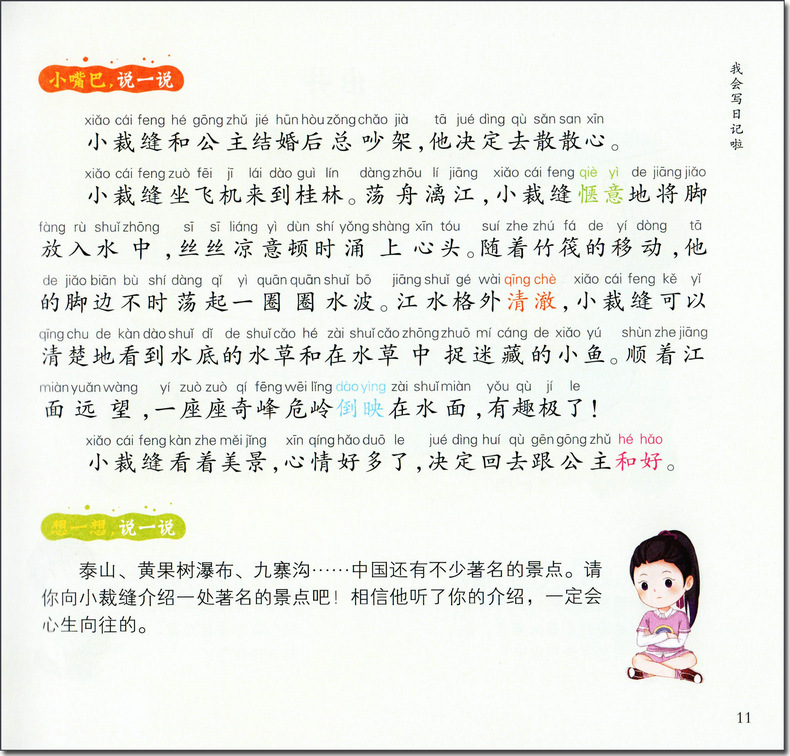 小嘴巴,说一说
我会写日记啦
xiǎo cái feng hé gōng zhǔ jié hūn hòu zǒng chǎo jià tā jué dìng qù sàn san xīn
小裁缝和公主结婚后总吵架,他决定去散散心。
xiǎo cái feng zuò fēi jī lái dào guì lín dàng zhōu lí jiāng xiǎo cái feng qiè yì de jiāng jiǎo
小裁缝坐飞机来到桂林。荡舟漓江,小裁缝惬意地将脚
fàng rù shuǐ zhōng sī sī liáng yì dùn shí yǒng shàng xīn tóu suí zhe zhú fá de yí dòng tā
放入水中,丝丝凉意顿时涌上心头。随着竹筏的移动,他
de jiǎo biān bù shí dàng qǐ yì quān quān shuǐ bō jiāng shuǐ gé wài qīng chè xiǎo cái feng kě yǐ
的脚边不时荡起一圈圈水波。江水格外清澈,小裁缝可以
qīng chu de kàn dào shuǐ dǐ de shuǐ cǎo hé zài shuǐ cǎo zhōng zhuō mí cáng de xiǎo yú shùn zhe jiāng
清楚地看到水底的水草和在水草中捉迷藏的小鱼。顺着江
miàn yuǎn wàng yí zuò zuò qí fēng wēi lǐng dào yìng zài shuǐ miàn yǒu qù jí le
面远望,一座座奇峰危岭倒映在水面,有趣极了!
xiǎo cái feng kàn zhe měi jǐng xīn qíng hǎo duō le jué dìng huí qù gēn gōng zhǔ hé hǎo
小裁缝看着美景,心情好多了,决定回去跟公主和好。
想一想,说一说
泰山、黄果树瀑布、九寨沟……中国还有不少著名的景点。请
你向小裁缝介绍一处著名的景点吧!相信他听了你的介绍,一定会
心生向往的。
11